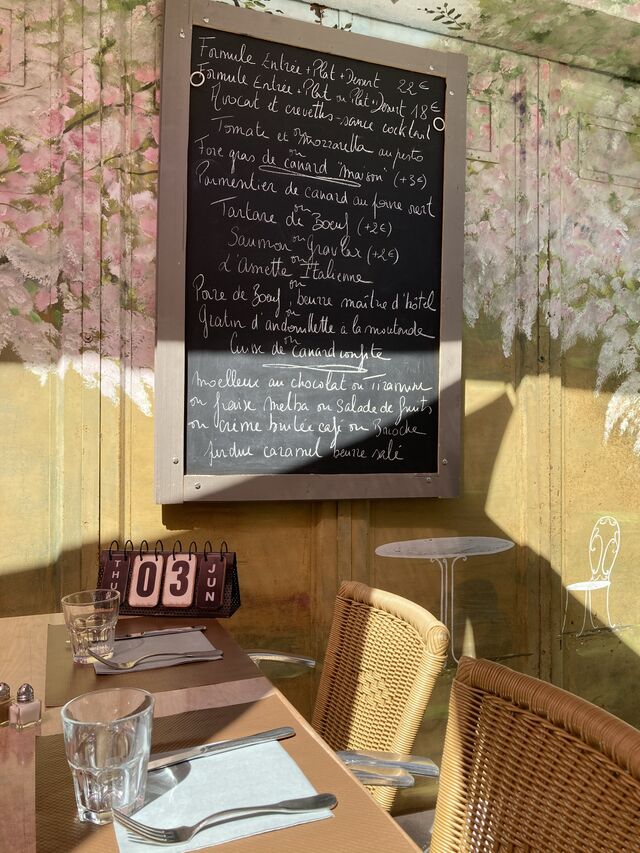 Formule Entrée + Plat + Dessert 22€
Formule Entrée + Plat ou Plat + Dessert 18€
Avocat et crevettes - sauce cocktail
ou
Tomate et mozzarella au pesto
ou
Foie gras de canard "maison" (+3€)
Parmentier de canard au foie vert
ou
Tartare de Boeuf (+2€)
ou
Saumon Gravlax (+2€)
ou
L'Assiette Italienne
ou
Poire de Boeuf, beurre maître d'hôtel
ou
Gratin d'andouillette a la moutarde
ou
Cuisse de canard confite
Moelleux au chocolat ou Tiramisu
ou fraise melba ou Salade de fruits
ou crème brulée café ou Brioche
perdue caramel beurre salé
THU 03 JUN